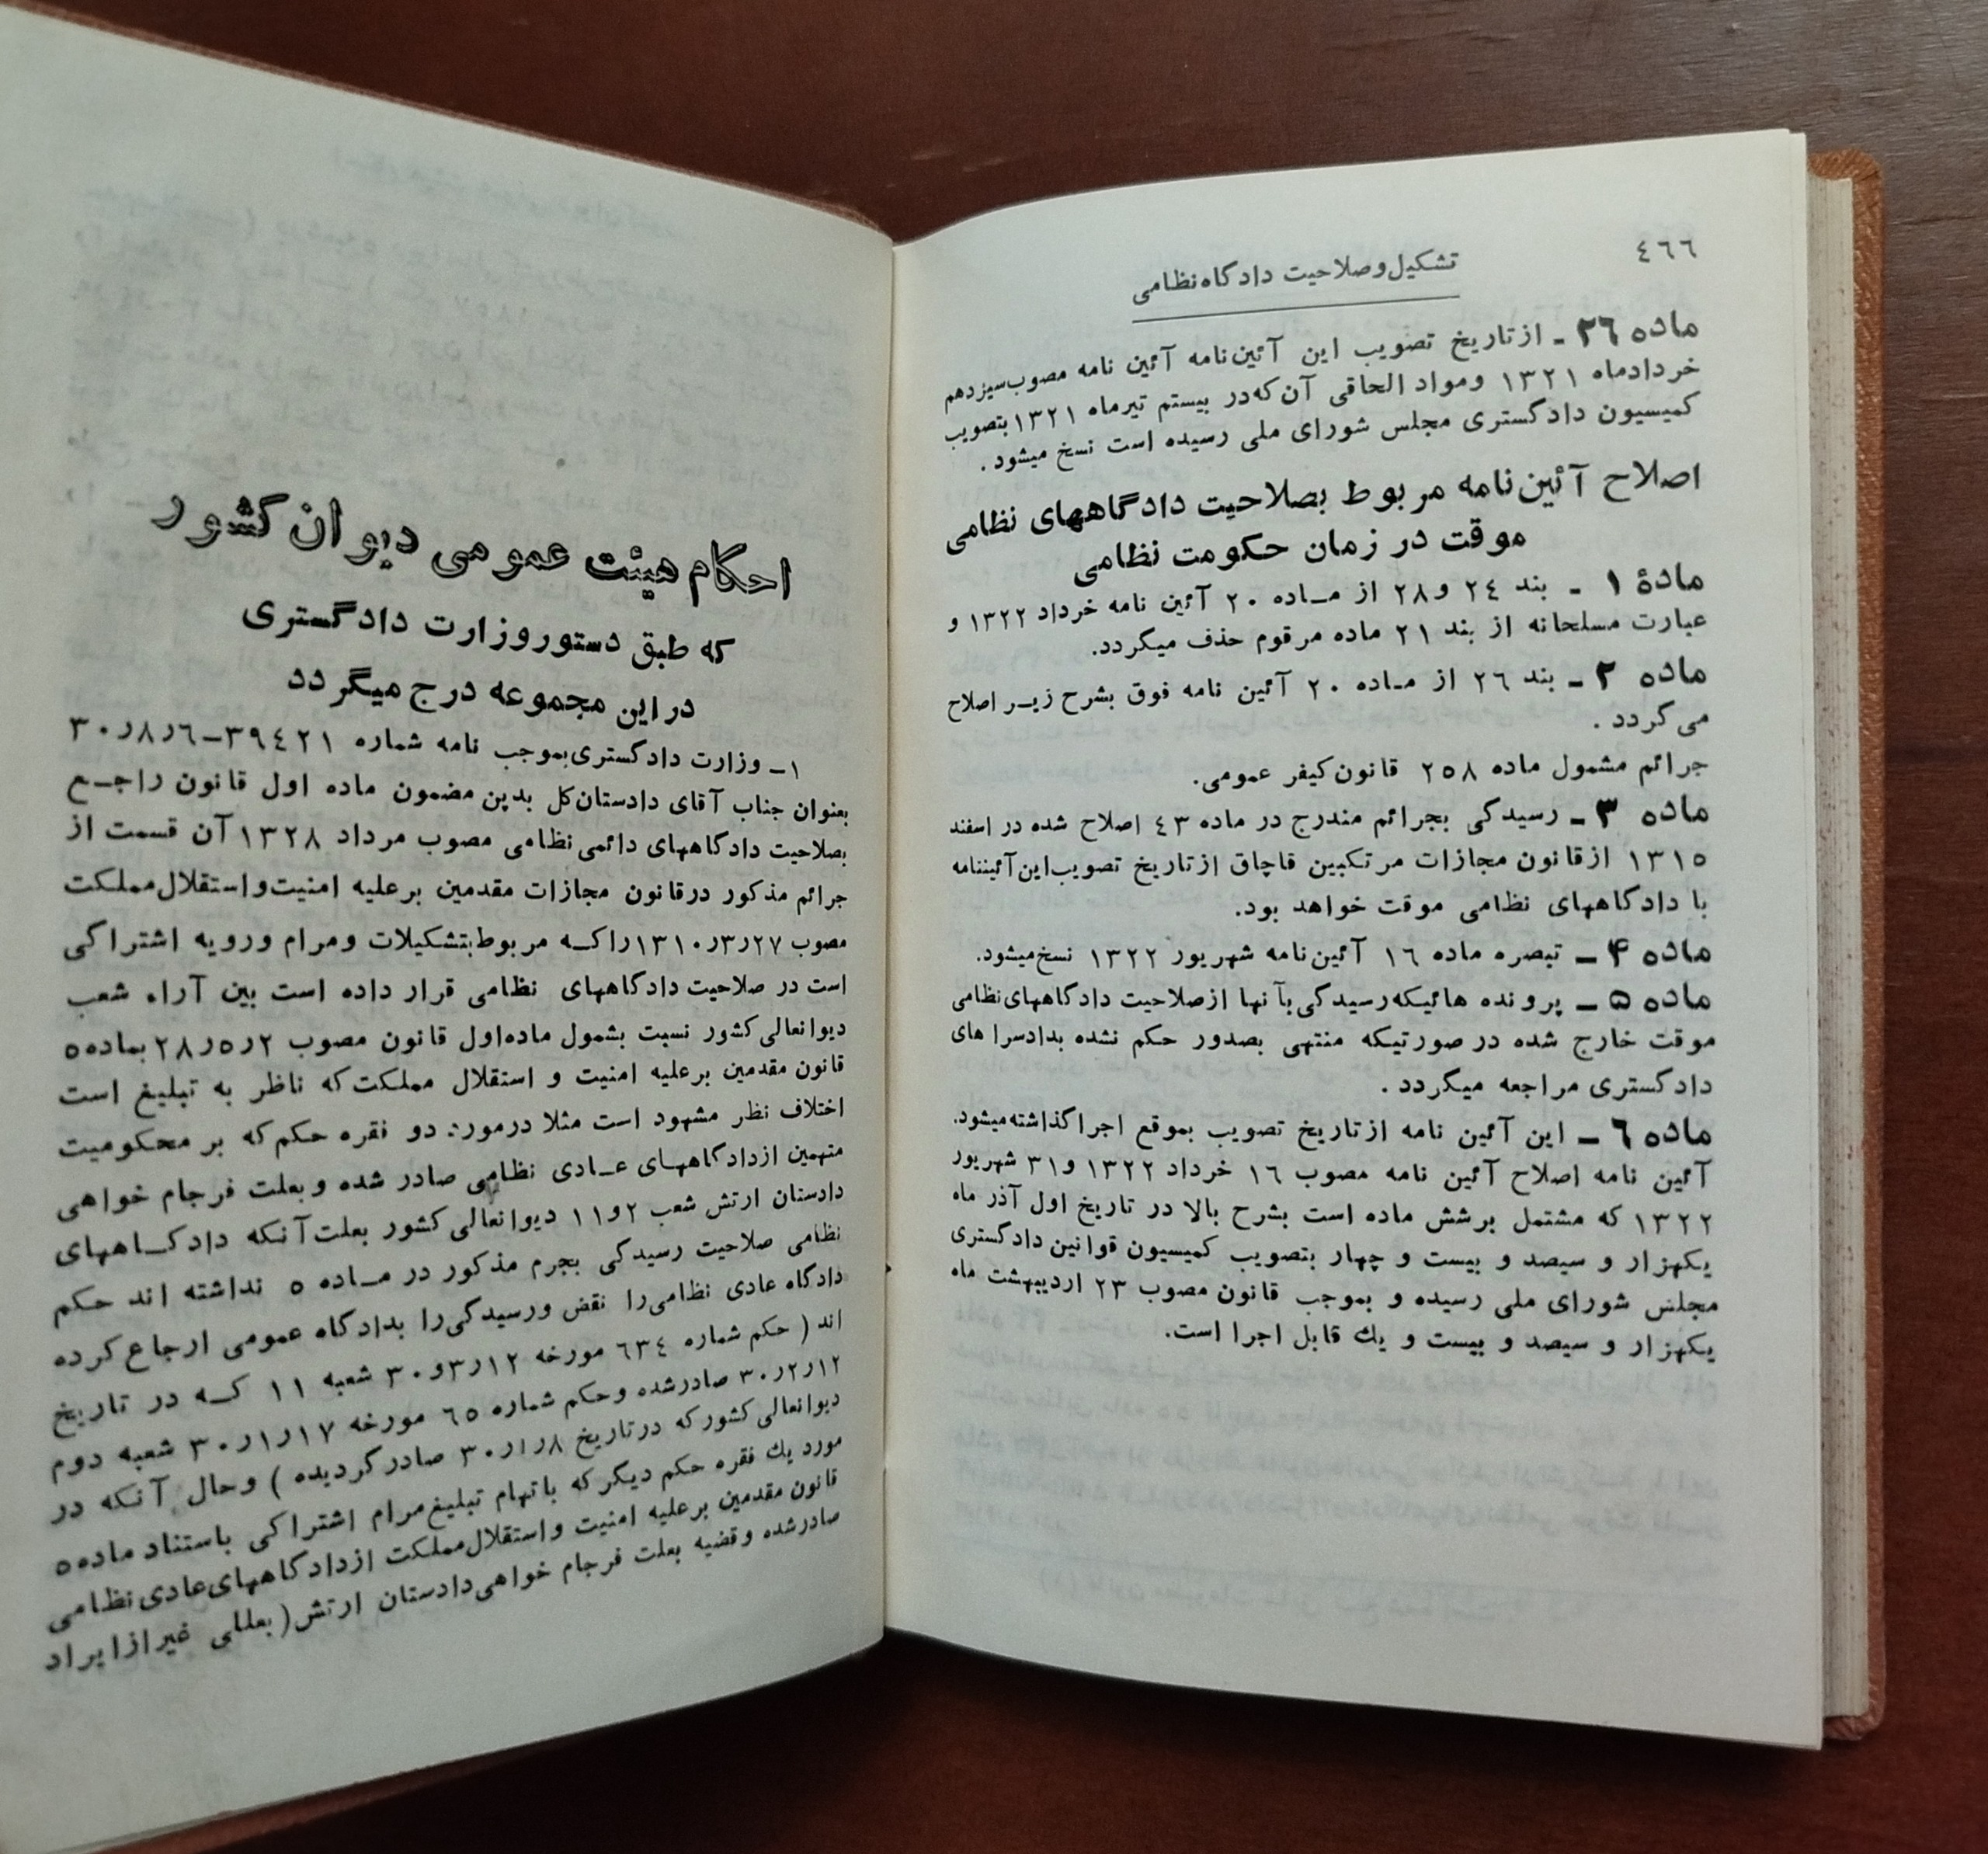 ٤٦٦
تشکیل و صلاحیت دادگاه نظامی
ماده ٢٦ ـ از تاریخ تصویب این آئین‌نامه آئین نامه مصوب سیزدهم
خرداد ماه ١٣٢١ ومواد الحاقی آن که در بیستم تیرماه ١٣٢١ بتصویب
کمیسیون دادگستری مجلس شورای ملی رسیده است نسخ میشود .
اصلاح آئین‌نامه مربوط بصلاحیت دادگاههای نظامی
موقت در زمان حکومت نظامی
مادهٔ ١ ـ بند ٢٤ و ٢٨ از مـاده ٢٠ آئین نامه خرداد ١٣٢٢ و
عبارت مسلحانه از بند ٢١ ماده مرقوم حذف میگردد.
ماده ٢ ـ بند ٢٦ از مـاده ٢٠ آئین نامه فوق بشرح زیـر اصلاح
می گردد .
جرائم مشمول ماده ٢٥٨ قانون کیفر عمومی.
ماده ٣ ـ رسیدگی بجرائم مندرج در ماده ٤٣ اصلاح شده در اسفند
١٣١٥ از قانون مجازات مرتکبین قاچاق از تاریخ تصویب این آئیننامه
با دادگاههای نظامی موقت خواهد بود.
ماده ۴ ـ تبصره ماده ١٦ آئین‌نامه شهریور ١٣٢٢ نسخ میشود.
ماده ۵ ـ پرونده هائیکه رسیدگی بآنها از صلاحیت دادگاههای نظامی
موقت خارج شده در صورتیکه منتهی بصدور حکم نشده بدادسرا های
دادگستری مراجعه میگردد .
ماده ٦ ـ این آئین نامه از تاریخ تصویب بموقع اجرا گذاشته میشود.
آئین نامه اصلاح آئین نامه مصوب ١٦ خرداد ١٣٢٢ و ٣١ شهریور
١٣٢٢ که مشتمل برشش ماده است بشرح بالا در تاریخ اول آذر ماه
یکهزار و سیصد و بیست و چهار بتصویب کمیسیون قوانین دادگستری
مجلس شورای ملی رسیده و بموجب قانون مصوب ٢٣ اردیبهشت ماه
یکهزار و سیصد و بیست و یك قابل اجرا است.
احکام هیئت عمومی دیوان کشور
که طبق دستور وزارت دادگستری
در این مجموعه درج میگردد
١ـ وزارت دادگستری بموجب نامه شماره ٣٩٤٢١ـ٦ر٨ر٣٠
بعنوان جناب آقای دادستان کل بدین مضمون ماده اول قانون راجـع
بصلاحیت دادگاههای دائمی نظامی مصوب مرداد ١٣٢٨ آن قسمت از
جرائم مذکور در قانون مجازات مقدمین بر علیه امنیت و استقلال مملکت
مصوب ٢٧ر٣ر١٣١٠ را کـه مربوط بتشکیلات و مرام و رویه اشتراکی
است در صلاحیت دادگاههای نظامی قرار داده است بین آراء شعب
دیوانعالی کشور نسبت بشمول ماده اول قانون مصوب ٢ر٥ر٢٨ بماده ٥
قانون مقدمین بر علیه امنیت و استقلال مملکت که ناظر به تبلیغ است
اختلاف نظر مشهود است مثلا در مورد: دو فقره حکم که بر محکومیت
متهمین از دادگاههـای عـادی نظامی صادر شده و بعلت فرجام خواهی
دادستان ارتش شعب ٢ و ١١ دیوانعالی کشور بعلت آنکه دادگـاههای
نظامی صلاحیت رسیدگی بجرم مذکور در مـاده ٥ نداشته اند حکم
دادگاه عادی نظامی را نقض و رسیدگی را بدادگاه عمومی ارجاع کرده
اند ( حکم شماره ٦٣٤ مورخه ١٢ر٣و٣٠ شعبه ١١ کـه در تاریخ
١٢ر٢ر٣٠ صادر شده و حکم شماره ٦٥ مورخه ١٧ر١ر٣٠ شعبه دوم
دیوانعالی کشور که در تاریخ ٨ر١ر٣٠ صادر گردیده ) و حال آنکه در
مورد یك فقره حکم دیگر که باتهام تبلیغ مرام اشتراکی باستناد ماده ٥
قانون مقدمین بر علیه امنیت و استقلال مملکت از دادگاههای عادی نظامی
صادر شده و قضیه بعلت فرجام خواهی دادستان ارتش ( بعللی غیر از ایراد